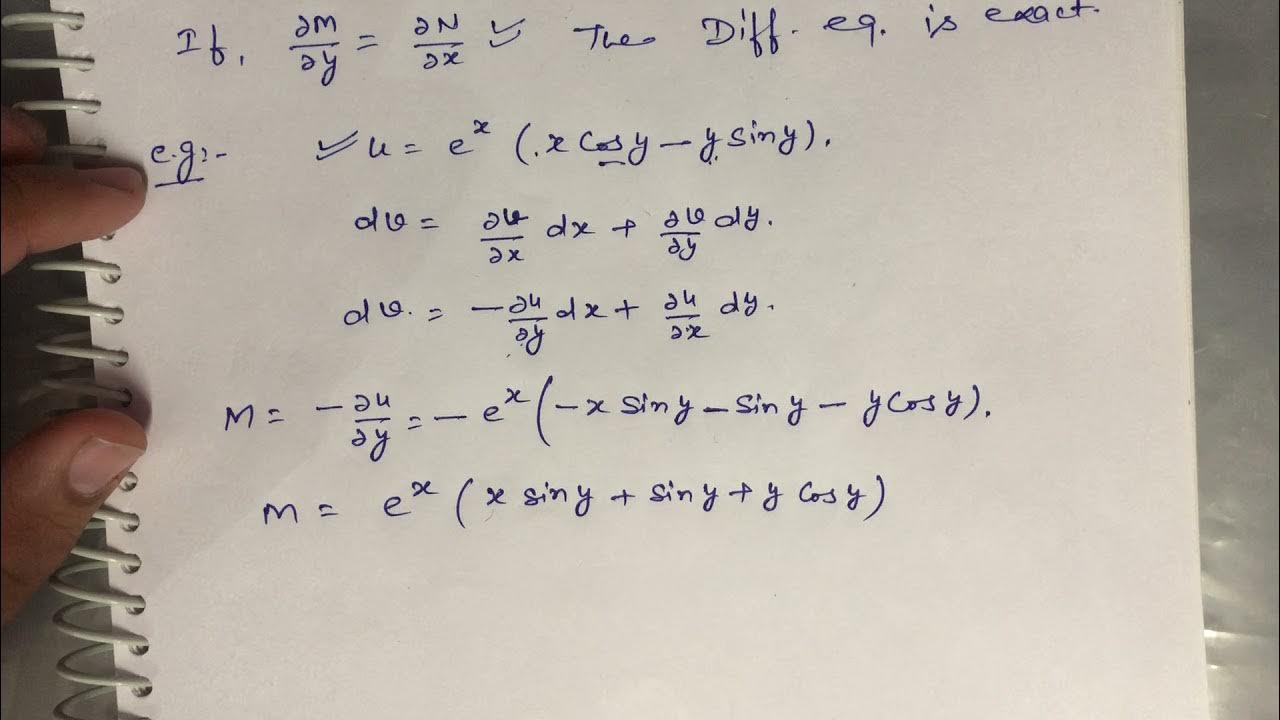 If, ∂M/∂y = ∂N/∂x ✓ The Diff. eq. is exact.
e.g:- ✓ u = e^x (x cos y - y sin y).
dv = ∂v/∂x dx + ∂v/∂y dy.
dv. = -∂u/∂y dx + ∂u/∂x dy.
M = -∂u/∂y = -e^x (-x sin y - sin y - y cos y).
M = e^x (x sin y + sin y + y cos y)